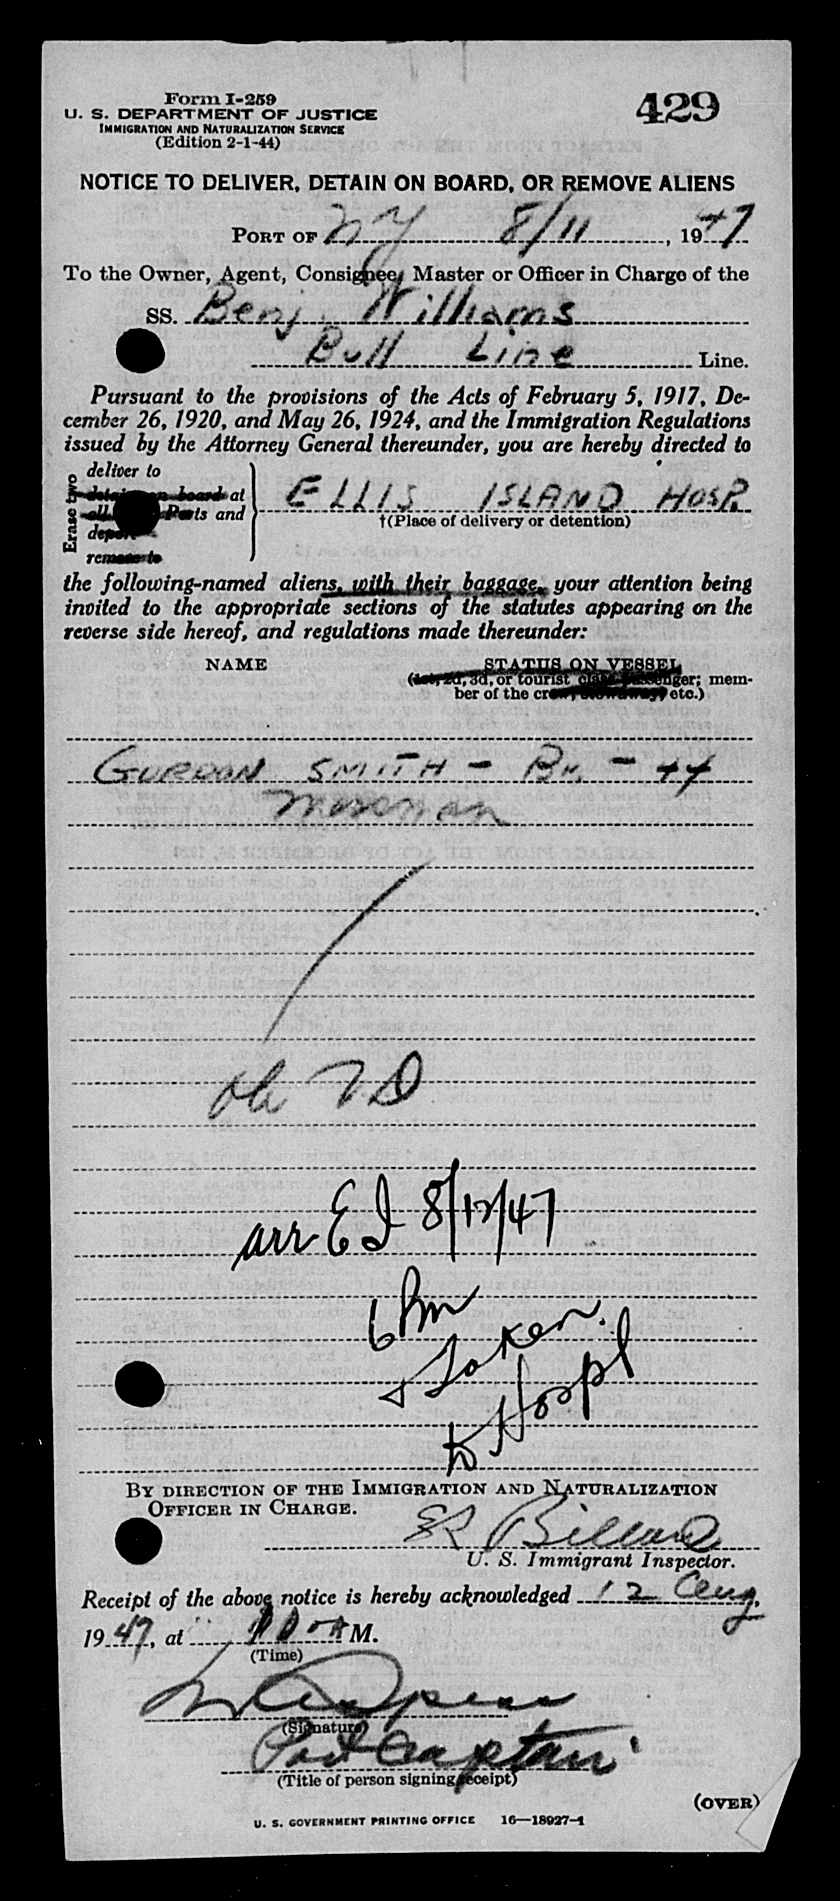 Form I-259
U. S. DEPARTMENT OF JUSTICE
IMMIGRATION AND NATURALIZATION SERVICE
(Edition 2-1-44)
429
NOTICE TO DELIVER, DETAIN ON BOARD, OR REMOVE ALIENS
PORT OF NY 8/11, 1947
To the Owner, Agent, Consignee, Master or Officer in Charge of the
SS. Benj. Williams
Bull Line Line.
Pursuant to the provisions of the Acts of February 5, 1917, De-
cember 26, 1920, and May 26, 1924, and the Immigration Regulations
issued by the Attorney General thereunder, you are hereby directed to
Erase two
deliver to
detain on board at
all Ports and
deport
remove to
ELLIS ISLAND HOSP.
†(Place of delivery or detention)
the following-named aliens, with their baggage, your attention being
invited to the appropriate sections of the statutes appearing on the
reverse side hereof, and regulations made thereunder:
NAME
STATUS ON VESSEL
(1st, 2d, 3d, or tourist class passenger; mem-
ber of the crew, stowaway, etc.)
GORDON SMITH - Br. - 44
Messman
ok
arr E I 8/12/47
6 Pm
& Taken
to Hospl
BY DIRECTION OF THE IMMIGRATION AND NATURALIZATION
OFFICER IN CHARGE.
U. S. Immigrant Inspector.
Receipt of the above notice is hereby acknowledged 12 Aug,
1947, at M.
(Time)
(Signature)
Port Captain
(Title of person signing receipt)
(OVER)
U. S. GOVERNMENT PRINTING OFFICE 16—18927-1